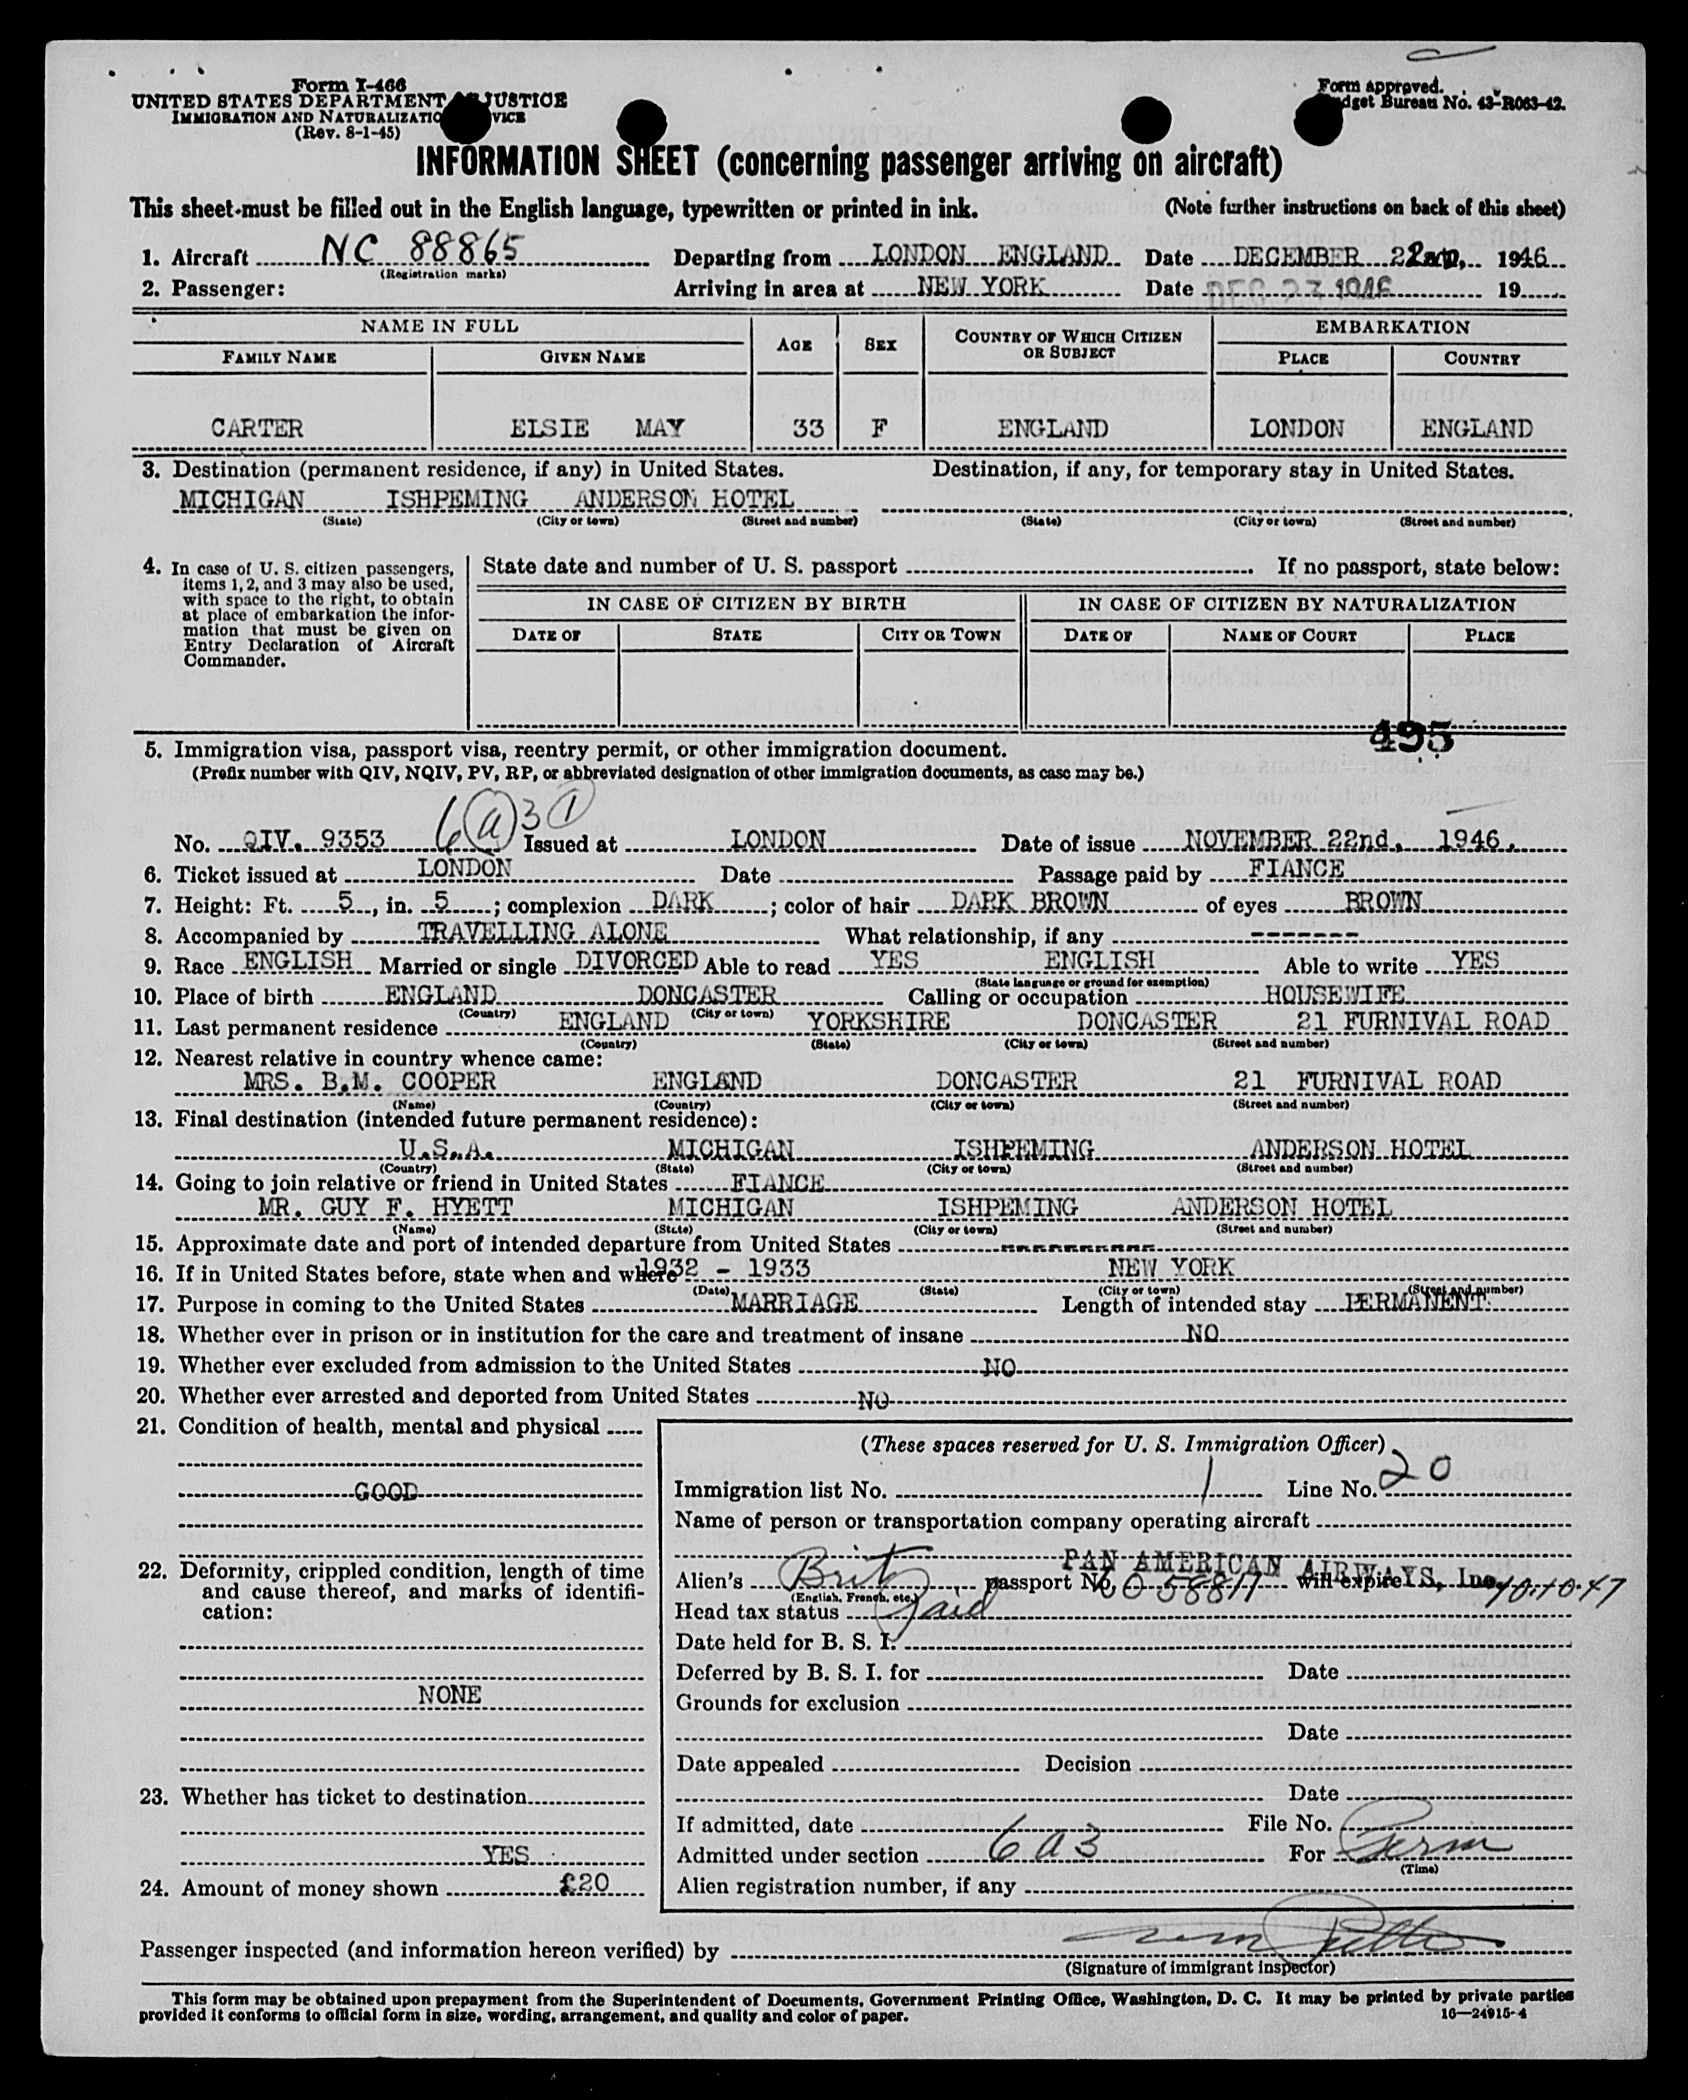 Form I-466
UNITED STATES DEPARTMENT JUSTICE
IMMIGRATION AND NATURALIZATIO VICE
(Rev. 8-1-45)
Form approved.
dget Bureau No. 43-R063-42.
INFORMATION SHEET (concerning passenger arriving on aircraft)
This sheet must be filled out in the English language, typewritten or printed in ink. (Note further instructions on back of this sheet)
1. Aircraft NC 88865 Departing from LONDON ENGLAND Date DECEMBER 1946
(Registration marks)
2. Passenger: Arriving in area at NEW YORK Date DEC 23 1946 19
NAME IN FULL AGE SEX COUNTRY OF WHICH CITIZEN OR SUBJECT EMBARKATION
FAMILY NAME GIVEN NAME PLACE COUNTRY
CARTER ELSIE MAY 33 F ENGLAND LONDON ENGLAND
3. Destination (permanent residence, if any) in United States. Destination, if any, for temporary stay in United States.
MICHIGAN ISHPEMING ANDERSON HOTEL
(State) (City or town) (Street and number) (State) (City or town) (Street and number)
4. In case of U. S. citizen passengers, items 1, 2, and 3 may also be used, with space to the right, to obtain at place of embarkation the information that must be given on Entry Declaration of Aircraft Commander.
State date and number of U. S. passport If no passport, state below:
IN CASE OF CITIZEN BY BIRTH IN CASE OF CITIZEN BY NATURALIZATION
DATE OF STATE CITY OR TOWN DATE OF NAME OF COURT PLACE
495
5. Immigration visa, passport visa, reentry permit, or other immigration document.
(Prefix number with QIV, NQIV, PV, RP, or abbreviated designation of other immigration documents, as case may be.)
6(a)3 (1)
No. QIV. 9353 Issued at LONDON Date of issue NOVEMBER 22nd, 1946.
6. Ticket issued at LONDON Date Passage paid by FIANCE
7. Height: Ft. 5, in. 5; complexion DARK; color of hair DARK BROWN of eyes BROWN
8. Accompanied by TRAVELLING ALONE What relationship, if any -------
9. Race ENGLISH Married or single DIVORCED Able to read YES ENGLISH Able to write YES
(State language or ground for exemption)
10. Place of birth ENGLAND DONCASTER Calling or occupation HOUSEWIFE
(Country) (City or town)
11. Last permanent residence ENGLAND YORKSHIRE DONCASTER 21 FURNIVAL ROAD
(Country) (State) (City or town) (Street and number)
12. Nearest relative in country whence came:
MRS. B.M. COOPER ENGLAND DONCASTER 21 FURNIVAL ROAD
(Name) (Country) (City or town) (Street and number)
13. Final destination (intended future permanent residence):
U.S.A. MICHIGAN ISHPEMING ANDERSON HOTEL
(Country) (State) (City or town) (Street and number)
14. Going to join relative or friend in United States FIANCE
MR. GUY F. HYETT MICHIGAN ISHPEMING ANDERSON HOTEL
(Name) (State) (City or town) (Street and number)
15. Approximate date and port of intended departure from United States ----------
16. If in United States before, state when and where 1932 - 1933 NEW YORK
(Date) (State) (City or town) (Street and number)
17. Purpose in coming to the United States MARRIAGE Length of intended stay PERMANENT.
18. Whether ever in prison or in institution for the care and treatment of insane NO
19. Whether ever excluded from admission to the United States NO
20. Whether ever arrested and deported from United States NO
21. Condition of health, mental and physical
GOOD
22. Deformity, crippled condition, length of time and cause thereof, and marks of identification:
NONE
23. Whether has ticket to destination
YES
24. Amount of money shown £20
(These spaces reserved for U. S. Immigration Officer)
Immigration list No. 1 Line No. 20
Name of person or transportation company operating aircraft
PAN AMERICAN AIRWAYS, Inc.
Alien's Brit passport No. will expire 10-10-47
(English, French, etc.)
Head tax status Paid
Date held for B. S. I.
Deferred by B. S. I. for Date
Grounds for exclusion
Date
Date appealed Decision
Date
If admitted, date File No.
Admitted under section 6 a 3 For Perm
(Time)
Alien registration number, if any
Passenger inspected (and information hereon verified) by
(Signature of immigrant inspector)
This form may be obtained upon prepayment from the Superintendent of Documents, Government Printing Office, Washington, D. C. It may be printed by private parties
provided it conforms to official form in size, wording, arrangement, and quality and color of paper.
16—24915-4